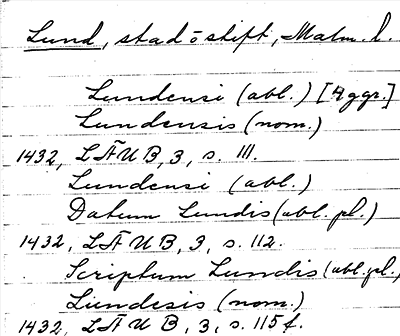 Lund, stad o stift, Malm. l.
Lundensi (abl.) [4 ggr.]
Lundensis (nom.)
1432, LÄUB, 3, s. 111.
Lundensi (abl.)
Datum Lundis (abl. pl.)
1432, LÄUB, 3, s. 112.
Scriptum Lundis (abl. pl.,
Lundesis (nom.)
1432, LÄUB, 3, s. 115 f.